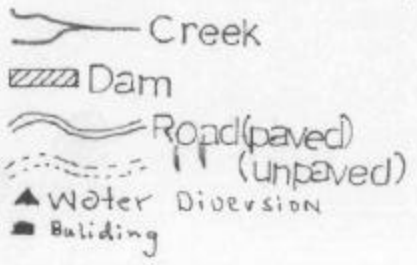 Creek
Dam
Road(paved)
(unpaved)
Water Diversion
Buliding